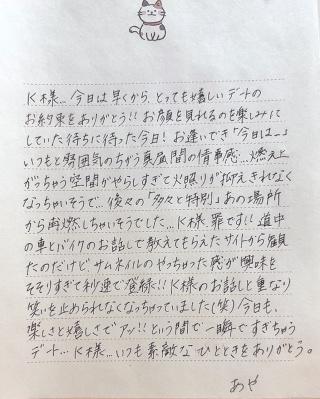 K様…今日は早くから、とっても嬉しいデートの
お約束をありがとう!! お顔を見れるのを楽しみに
していた待ちに待った今日! お逢いでき「今日は…」
いつもと雰囲気のちがう真昼間の情事感…燃え上
がっちゃう空間がやらしすぎて火照りが抑えきれなく
なっちゃいそうで…後々の「多々と特別」あの場所
から再燃しちゃいそうでした…K様、罪です!! 道中
の車とバイクのお話しで教えてもらえたサイトから観
たのだけどサムネイルのやっちゃった感が興味を
そそりすぎて秒速で登録!! K様のお話しと重なり
笑いを止められなくなっちゃっていました(笑)今日も、
楽しさと嬉しさでアッ!!という間で一瞬ですぎちゃう
デート…K様…いつも素敵なひとときをありがとう。
あや